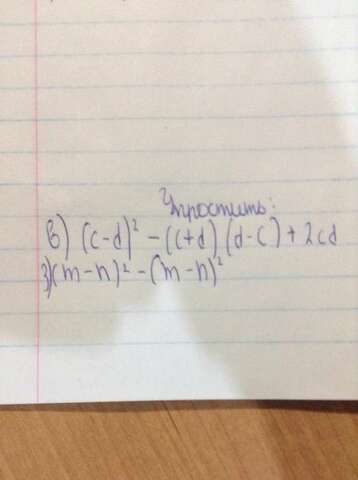 Упростить:
в) (c-d)² - (c+d) (d-c) + 2cd
з) (m-n)² - (m-n)²